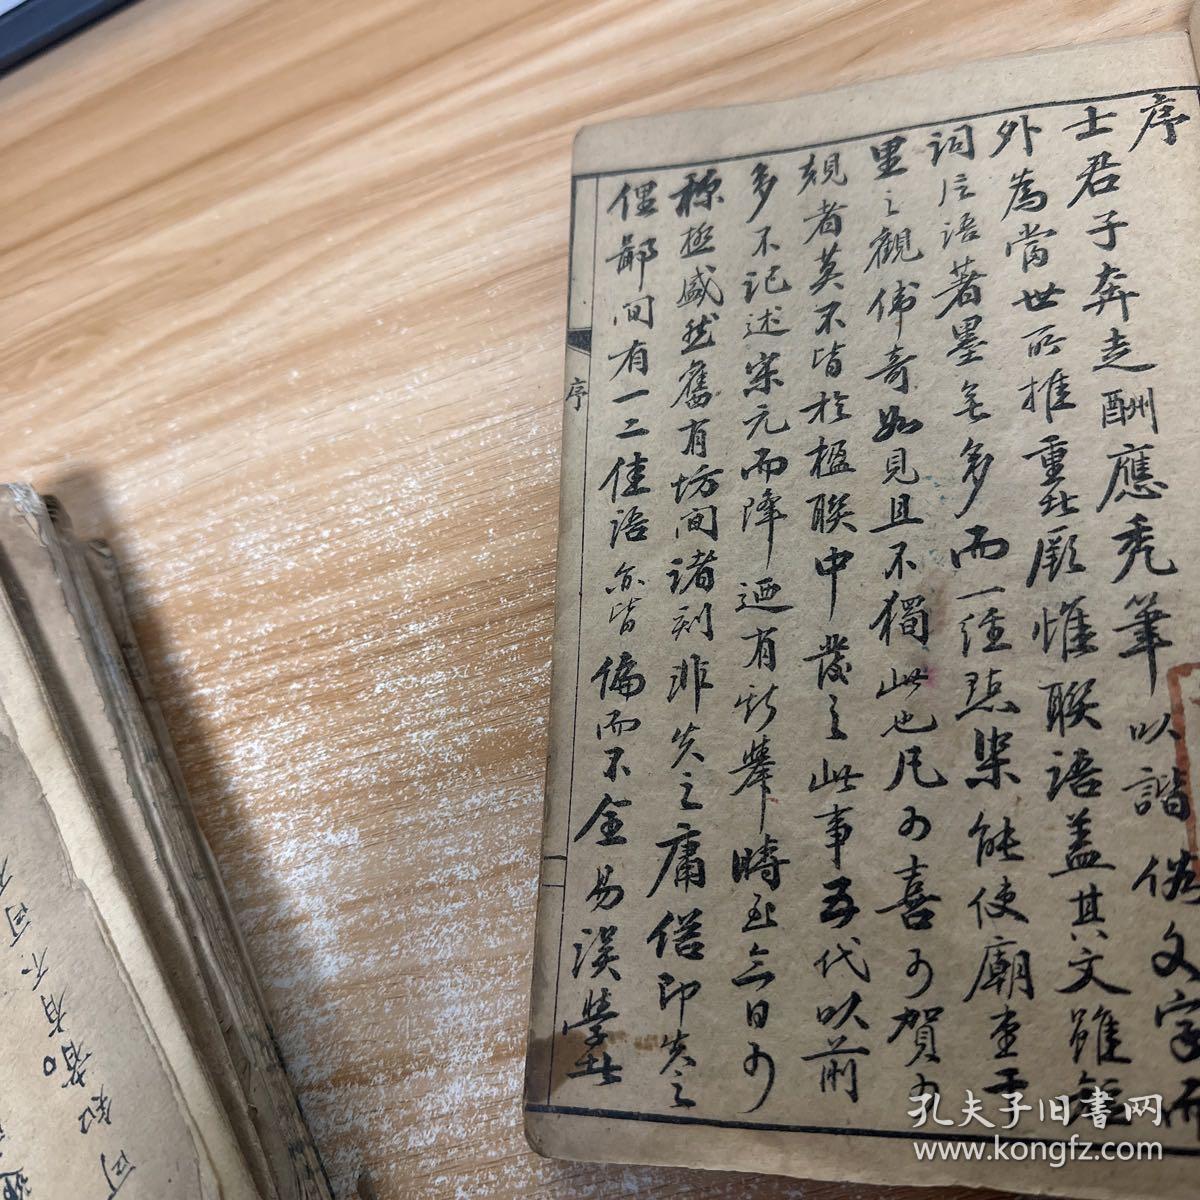 序
士君子奔走酬應禿筆以諧俗文字而
外為當世所推重者厥惟聯語蓋其文雖
詞片語著墨無多而一經點染能使廟堂
里之觀佛奇如見且不獨此也凡可喜可賀可
者莫不皆於楹聯中發之此事五代以前
多不記述宋元而降迺有斯舉時至今日可
稱極盛然舊有坊間諸刻非失之庸俗即失之
俚鄙間有一二佳語亦皆偏而不全易誤學
序
孔夫子旧書网
www.kongfz.com